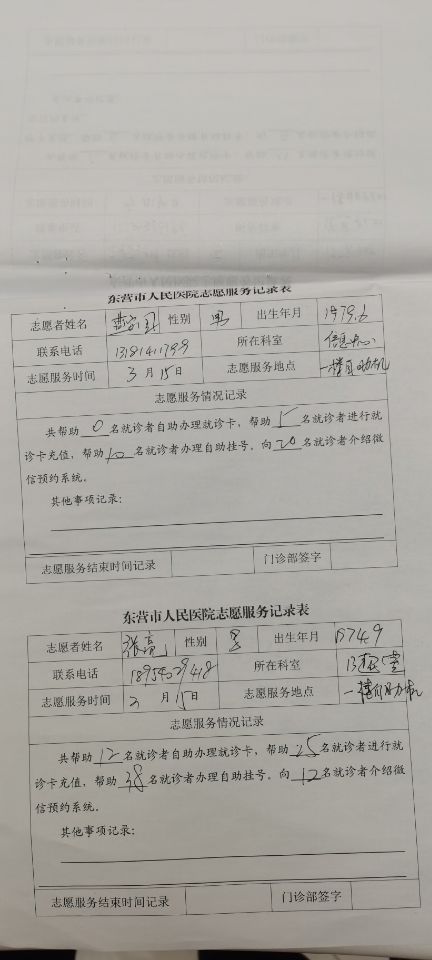 东营市人民医院志愿服务记录表
志愿者姓名 性别 男 出生年月 1979.6
联系电话 所在科室 信息中心
志愿服务时间 3月15日 志愿服务地点 一楼自助机
志愿服务情况记录
共帮助0名就诊者自助办理就诊卡,帮助5名就诊者进行就
诊卡充值,帮助10名就诊者办理自助挂号,向20名就诊者介绍微
信预约系统。
其他事项记录:
志愿服务结束时间记录 门诊部签字
东营市人民医院志愿服务记录表
志愿者姓名 张亮 性别 男 出生年月 1974.9
联系电话 18954629418 所在科室
志愿服务时间 3月15日 志愿服务地点 一楼自助机
志愿服务情况记录
共帮助12名就诊者自助办理就诊卡,帮助25名就诊者进行就
诊卡充值,帮助38名就诊者办理自助挂号,向12名就诊者介绍微
信预约系统。
其他事项记录:
志愿服务结束时间记录 门诊部签字